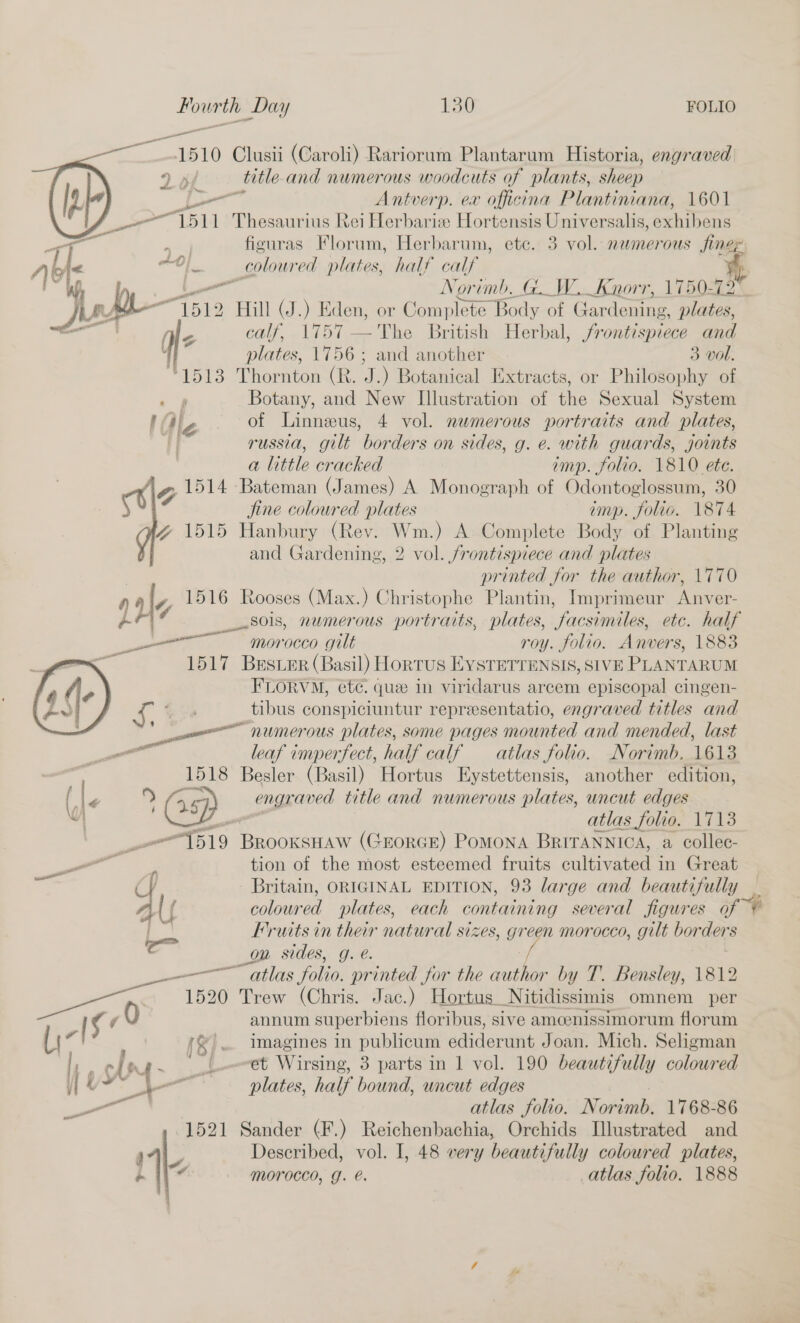 Fourth Day 130 FOLIO
1510 Clusii (Caroli) Rariorum Plantarum Historia, engraved
title and numerous woodcuts of plants, sheep
Antverp. ex officina Plantiniana, 1601
1511 Thesaurius Rei Herbariæ Hortensis Universalis, exhibens
figuras Florum, Herbarum, etc. 3 vol. numerous finely
coloured plates, half calf
Norimb. G. W. Knorr, 1750-72
1512 Hill (J.) Eden, or Complete Body of Gardening, plates,
calf, 1757—The British Herbal, frontispiece and
plates, 1756; and another 3 vol.
1513 Thornton (R. J.) Botanical Extracts, or Philosophy of
Botany, and New Illustration of the Sexual System
of Linnæus, 4 vol. numerous portraits and plates,
russia, gilt borders on sides, g. e. with guards, joints
a little cracked imp. folio. 1810 etc.
1514 Bateman (James) A Monograph of Odontoglossum, 30
fine coloured plates imp. folio. 1874
1515 Hanbury (Rev. Wm.) A Complete Body of Planting
and Gardening, 2 vol. frontispiece and plates
printed for the author, 1770
1516 Rooses (Max.) Christophe Plantin, Imprimeur Anver-
sois, numerous portraits, plates, facsimiles, etc. half
morocco gilt roy. folio. Anvers, 1883
1517 BESLER (Basil) HORTUS EYSTETTENSIS, SIVE PLANTARUM
FLORVM, etc. quæ in viridarus arcem episcopal cingen-
tibus conspiciuntur repræsentatio, engraved titles and
numerous plates, some pages mounted and mended, last
leaf imperfect, half calf atlas folio. Norimb. 1613
1518 Besler (Basil) Hortus Eystettensis, another edition,
engraved title and numerous plates, uncut edges
atlas folio. 1713
1519 BROOKSHAW (GEORGE) POMONA BRITANNICA, a collec-
tion of the most esteemed fruits cultivated in Great
Britain, ORIGINAL EDITION, 93 large and beautifully
coloured plates, each containing several figures of
Fruits in their natural sizes, green morocco, gilt borders
on sides, g. e.
atlas folio. printed for the author by T. Bensley, 1812
1520 Trew (Chris. Jac.) Hortus Nitidissimis omnem per
annum superbiens floribus, sive amœnissimorum florum
imagines in publicum ediderunt Joan. Mich. Seligman
et Wirsing, 3 parts in 1 vol. 190 beautifully coloured
plates, half bound, uncut edges
atlas folio. Norimb. 1768-86
1521 Sander (F.) Reichenbachia, Orchids Illustrated and
Described, vol. I, 48 very beautifully coloured plates,
morocco, g. e. atlas folio. 1888